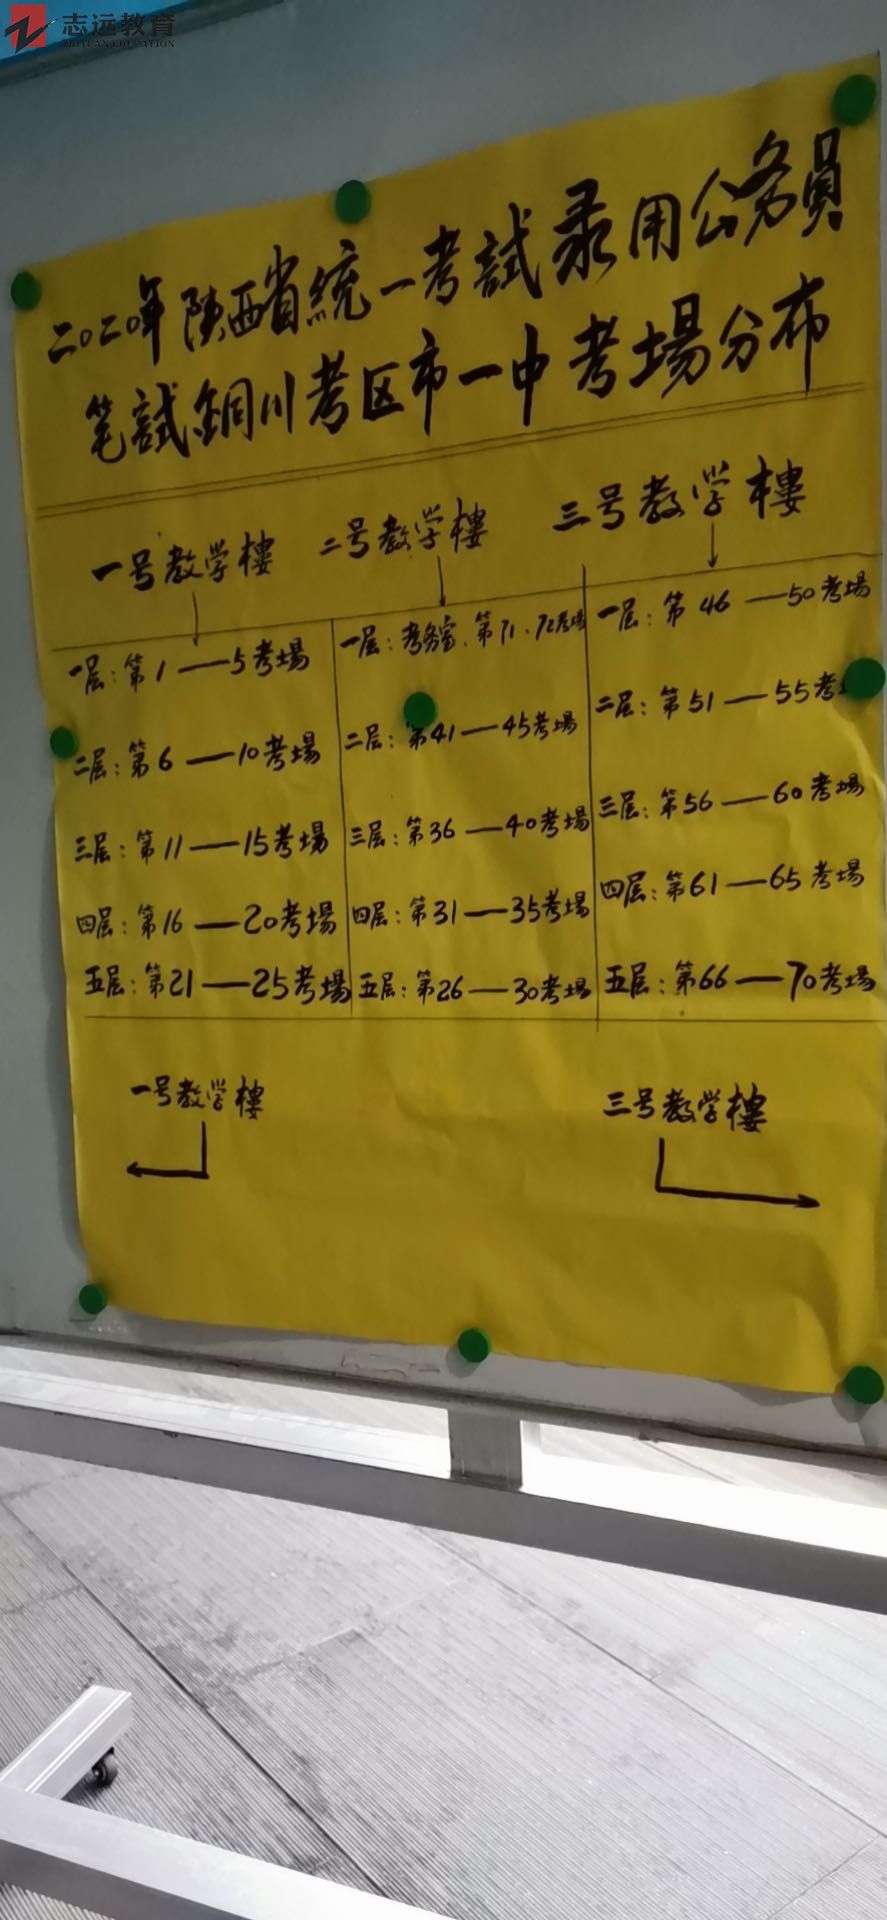 志远教育
ZHIYUAN EDUCATION
二〇二〇年陕西省統一考試录用公务員
笔試銅川考区市一中考場分布
一号教学樓 二号教学樓 三号教学樓
一层:第1——5考場
二层:第6——10考場
三层:第11——15考場
四层:第16——20考場
五层:第21——25考場
一层:考务室、第71、72考場
二层:第41——45考場
三层:第36——40考場
四层:第31——35考場
五层:第26——30考場
一层:第46——50考場
二层:第51——55考
三层:第56——60考場
四层:第61——65考場
五层:第66——70考場
一号教学樓
三号教学樓